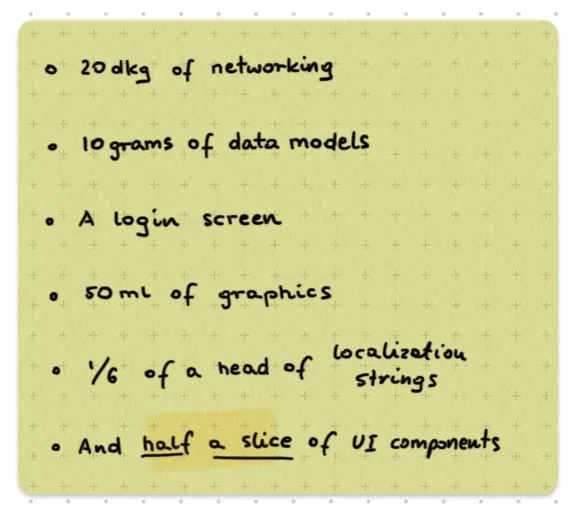 20 dkg of networking
10 grams of data models
A login screen
50 ml of graphics
1/6 of a head of localization
strings
And half a slice of UI components